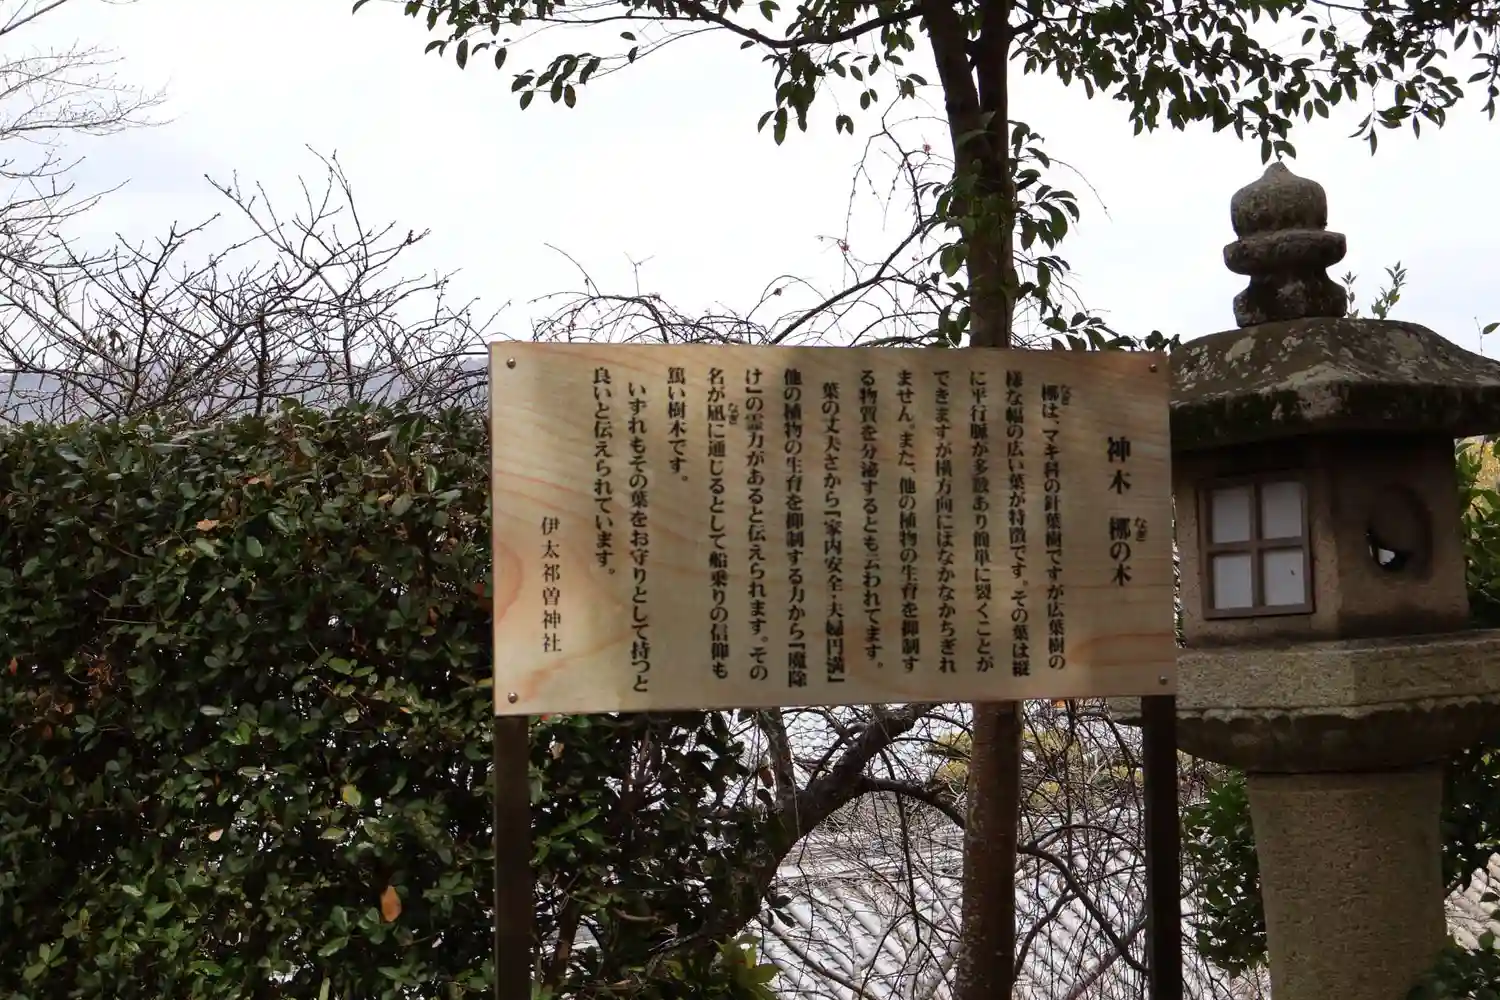 神木 梛の木
梛は、マキ科の針葉樹ですが広葉樹の
様な幅の広い葉が特徴です。その葉は縦
に平行脈が多数あり簡単に裂くことが
できますが横方向にはなかなかちぎれ
ません。また、他の植物の生育を抑制す
る物質を分泌するとも云われてます。
葉の丈夫さから『家内安全・夫婦円満』
他の植物の生育を抑制する力から『魔除
け』の霊力があると伝えられます。その
名が凪に通じるとして船乗りの信仰も
篤い樹木です。
いずれもその葉をお守りとして持つと
良いと伝えられています。
伊太祁曽神社